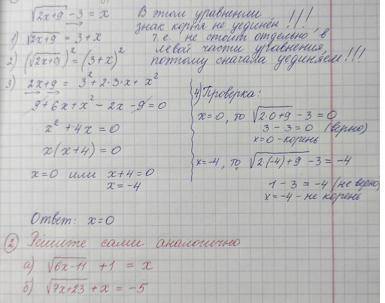 √2x+9 - 3 = x
В этом уравнении !!!
знак корня не уединен
т.е. не стоит отдельно в
левой части уравнения,
поэтому сначала уединяем!!!
1) √2x+9 = 3+x
2) (√2x+9)² = (3+x)²
3) 2x+9 = 3²+2·3·x+x²
9+6x+x²-2x-9=0
x²+4x=0
x(x+4)=0
x=0 или x+4=0
x=-4
4) Проверка:
x=0, то √2·0+9 - 3 = 0
3-3=0 (верно)
x=0 - корень
x=-4, то √2(-4)+9 - 3 = -4
1-3=-4 (не верно)
x=-4 - не корень
Ответ: x=0
2 Решите сами аналогично
а) √6x-11 + 1 = x
б) √7x+23 + x = -5